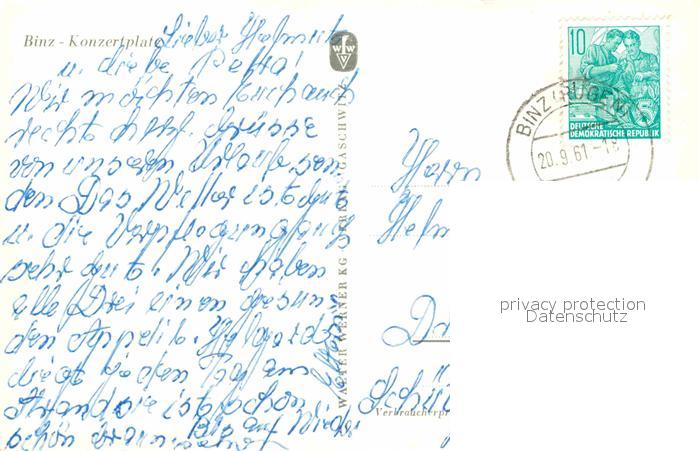 Binz - Konzertplatz
Lieber Helmut
u. liebe Petra!
Wir möchten Euch auch
recht herzl. Grüsse
von unseren Urlaub sen
den Das Wetter ist
u. die Verpflegung auch
sehr gut. Wir haben
alle Drei einen gesun
den Appetit.
liegt jeden Tag am
Strand sie ist schon
schön braun.
Bis auf Wieder
WALTER WERNER KG GASCHWITZ
10
DEUTSCHE
DEMOKRATISCHE REPUBLIK
BINZ (RÜGEN)
20.9.61
Herrn
Helm
privacy protection
Datenschutz